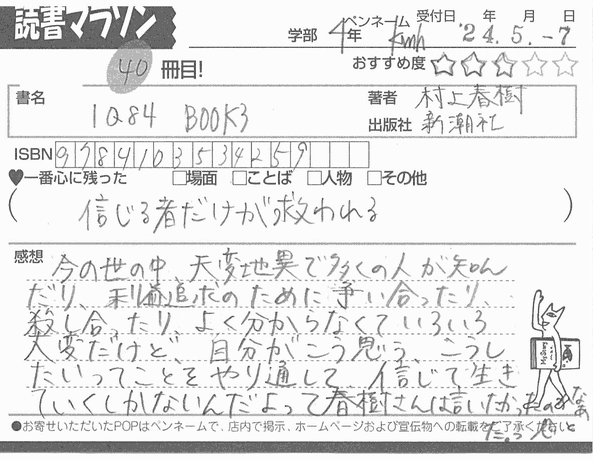 読書マラソン
学部 4年 ペンネーム kmh 受付日 '24年 5.月 -7日
40 冊目!
おすすめ度 ☆☆☆☆☆
書名 1Q84 BOOK3
著者 村上春樹
出版社 新潮社
ISBN 9784103534259
♥一番心に残った □場面 □ことば □人物 □その他
(信じる者だけが救われる)
感想
今の世の中、天変地異で多くの人が死ん
だり、利益追求のために争い合ったり、
殺し合ったり、よく分からなくていろいろ
大変だけど、自分がこう思う、こうし
たいってことをやり通して、信じて生き
ていくしかないんだよって春樹さんは言いたかったのかなあ
だと思
●お寄せいただいたPOPはペンネームで、店内で掲示、ホームページおよび宣伝物への転載をご了承ください